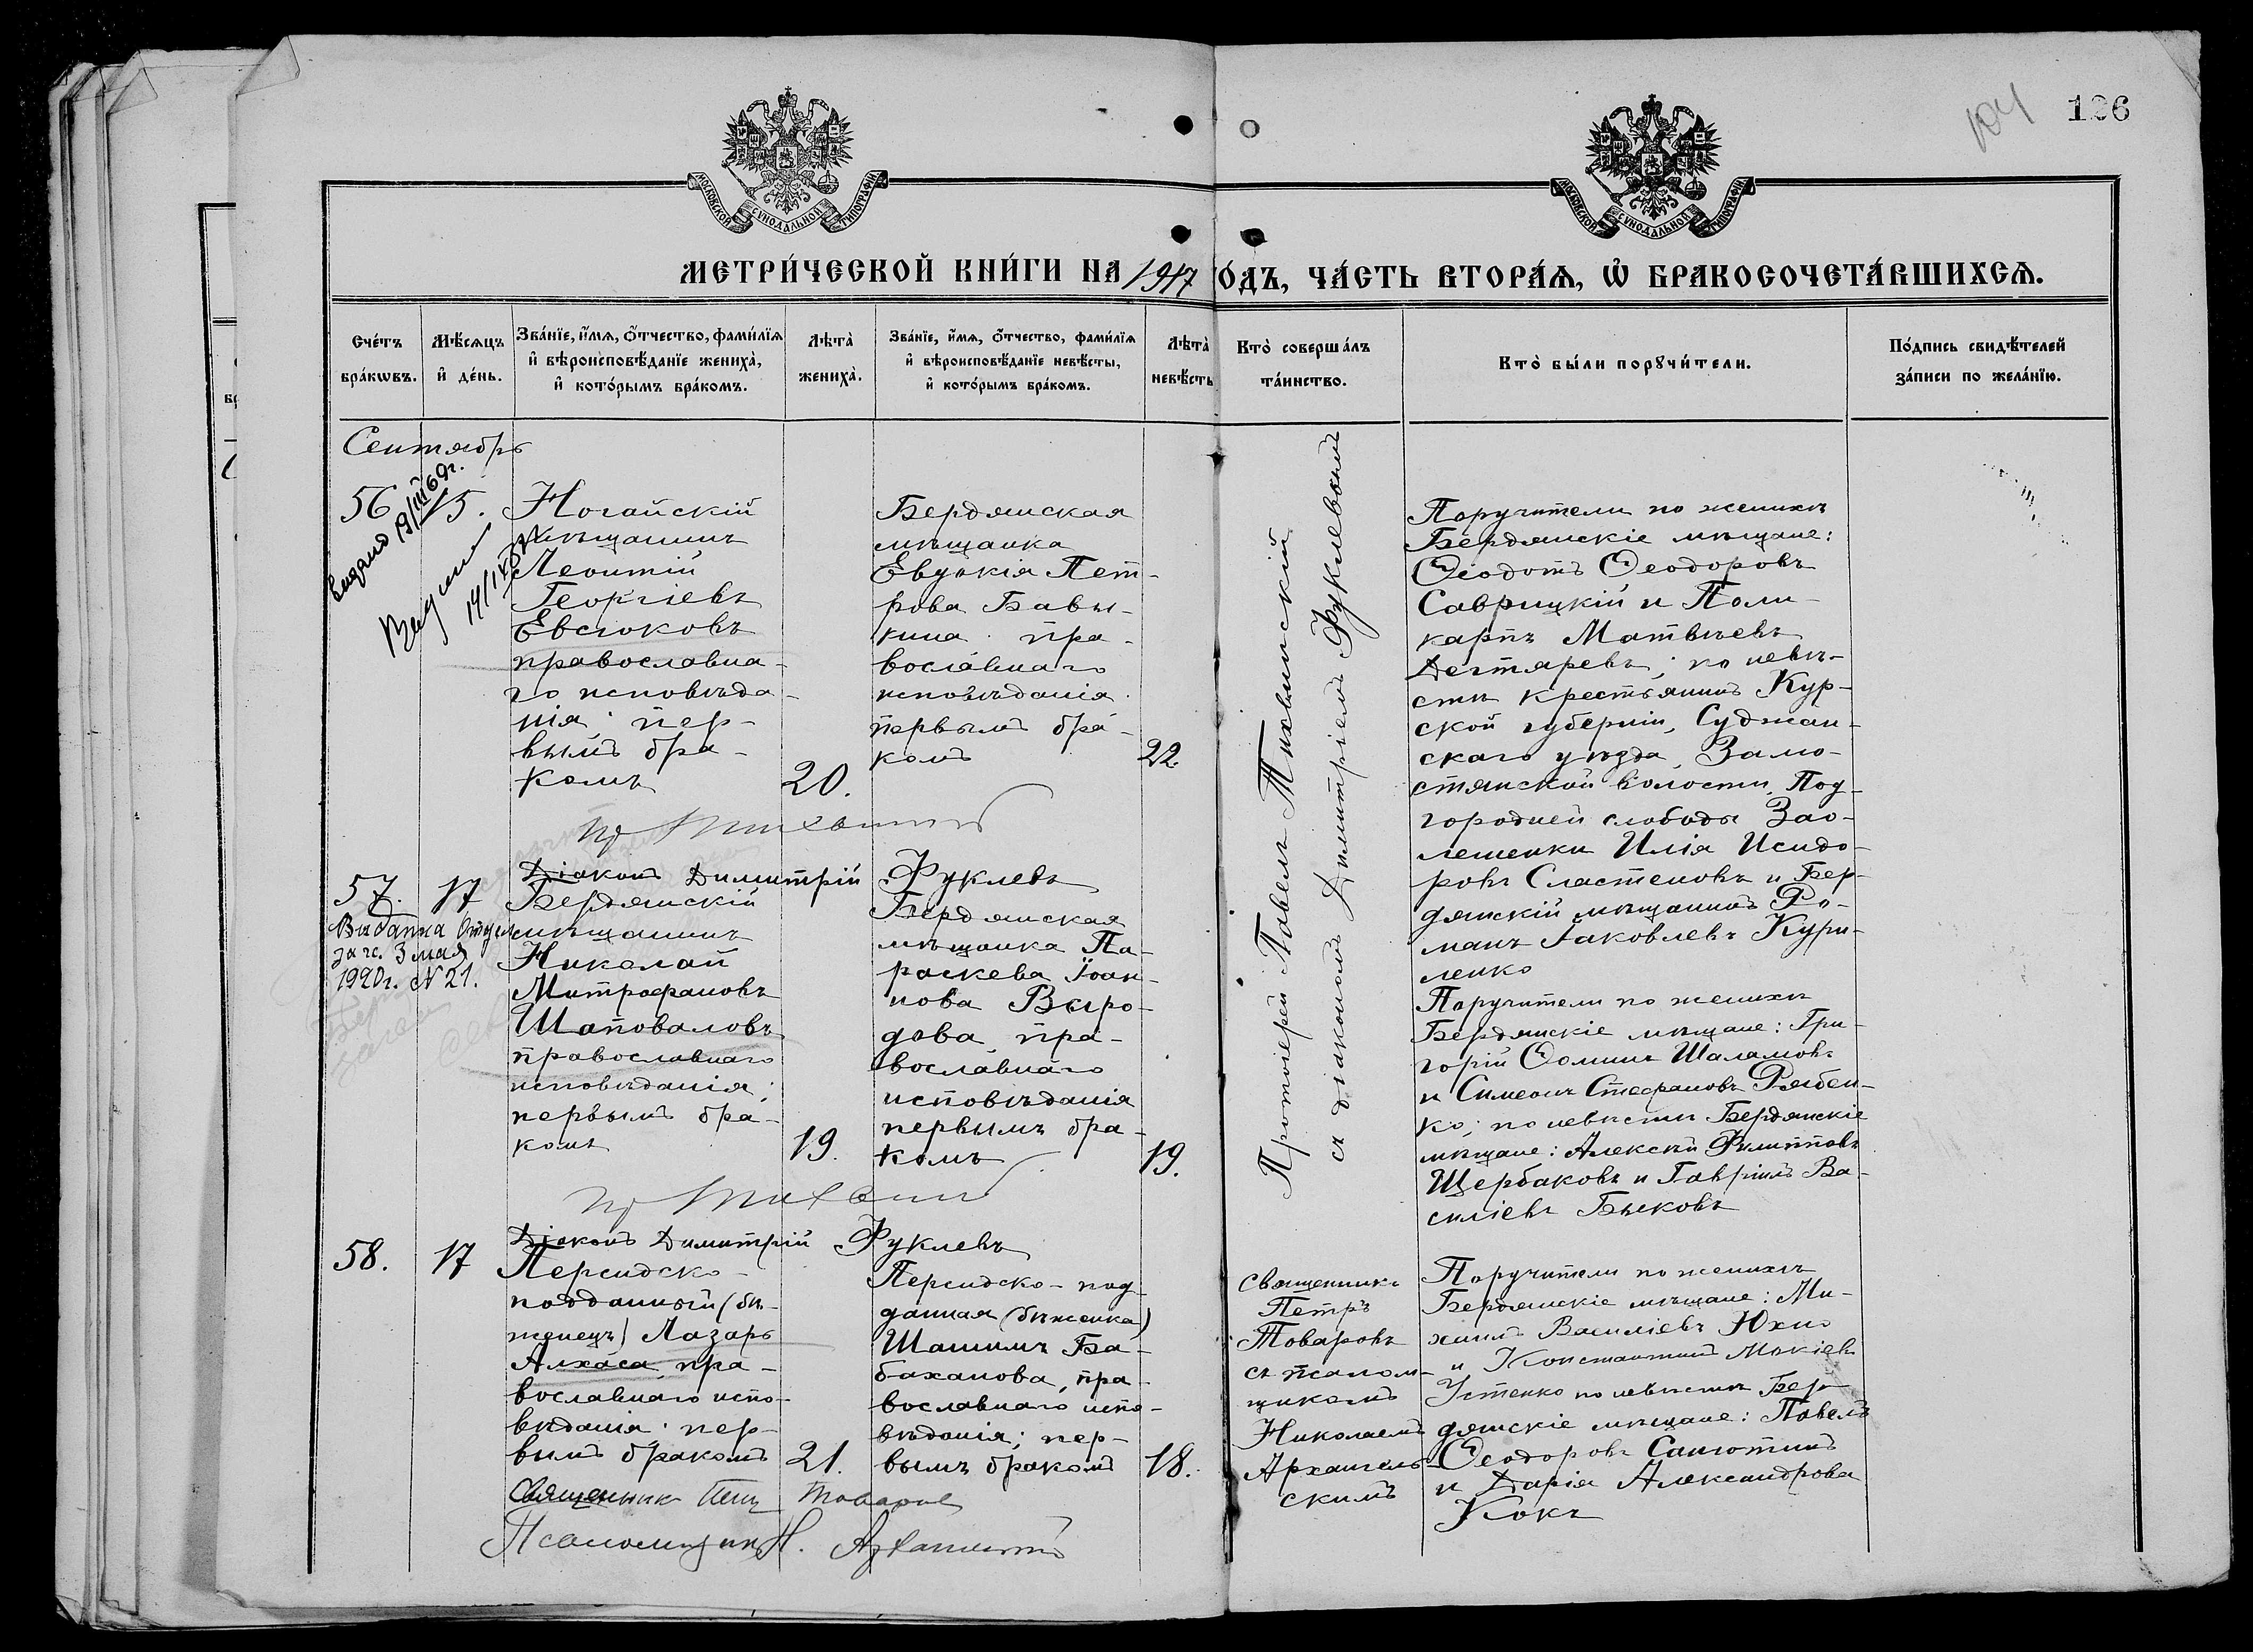 104
126
МОСКОВСКОЙ СѴНОДАЛЬНОЙ ТИПОГРАФІИ
МОСКОВСКОЙ СѴНОДАЛЬНОЙ ТИПОГРАФІИ
МЕТРИ́ЧЕСКОЙ КНИ́ГИ НА 1917 ГО́ДЪ, ЧА́СТЬ ВТОРА́Ѧ, Ѽ БРАКОСОЧЕТА́ВШИХСѦ.
Сче́тъ бра́кѡвъ.
Мѣ́сѧцъ и҆ де́нь.
Зва́нїе, и҆́мѧ, ѻ҆́тчество, фами́лїѧ и҆ вѣроисповѣ́данїе жениха̀, и҆ кото́рымъ бра́комъ.
Лѣта̀ жениха̀.
Зва́нїе, и҆́мѧ, ѻ҆́тчество, фами́лїѧ и҆ вѣроисповѣ́данїе невѣ́сты, и҆ кото́рымъ бра́комъ.
Лѣта̀ невѣ́сты
Кто̀ соверша́лъ та́инство.
Кто̀ бы́ли порꙋчи́тели.
По́дпись свидѣ́телей за́писи по жела́нїю.
Сентябрь
56
15.
Выдано 19/III 60г.
Ногайскій
мѣщанинъ
Леонтій
Георгіевъ
Евсюковъ
православна-
го исповѣда-
нія; пер-
вымъ бра-
комъ
20.
Бердянская
мѣщанка
Евдокія Пет-
рова Бавы-
кина пра-
вославнаго
исповѣданія
первымъ бра-
комъ
22.
Протоіерей Павелъ Тихвинскій
съ діакономъ Димитріемъ Фуклевымъ
Поручители по женихѣ
Бердянскіе мѣщане:
Ѳеодотъ Ѳеодоровъ
Саврицкій и Поли-
карпъ Матвѣевъ
Дегтяревъ; по невѣ-
стѣ крестьянинъ Кур-
ской губерніи, Суджан-
скаго уѣзда, Замо-
стянской волости, Под-
городней слободы Зао-
лешенки Илія Исидо-
ровъ Сластеновъ и Бер-
дянскій мѣщанинъ Ро-
манъ Іаковлевъ Кури-
ленко
Діаконъ Димитрій Фуклевъ
57.
17
Выдана
за ч. 3 мая
1920г. № 21.
Бердянскій
мѣщанинъ
Николай
Митрофановъ
Шаповаловъ
православнаго
исповѣданія;
первымъ бра-
комъ
19.
Бердянская
мѣщанка Па-
раскева Іоан-
нова Выро-
дова пра-
вославнаго
исповѣданія
первымъ бра-
комъ
19.
Поручители по женихѣ
Бердянскіе мѣщане: Гри-
горій Ѳоминъ Шаламовъ
и Симеонъ Стефановъ Рябен-
ко; по невѣстѣ Бердянскіе
мѣщане: Алексѣй Филипповъ
Щербаковъ и Гавріилъ Ва-
силіевъ Быковъ
Діаконъ Димитрій Фуклевъ
58.
17
Персидско-
подданный (бѣ-
женецъ) Лазарь
Алхаса, пра-
вославнаго испо-
вѣданія; пер-
вымъ бракомъ
21.
Персидско-под-
данная (бѣженка)
Шашимъ Ба-
баханова, пра-
вославнаго испо-
вѣданія; пер-
вымъ бракомъ
18.
Священникъ
Петръ
Товаровъ
съ псалом-
щикомъ
Николаемъ
Архангель-
скимъ
Поручители по женихѣ
Бердянскіе мѣщане: Ми-
хаилъ Василіевъ Юхно
и Константинъ Мокіевъ
Устенко по невѣстѣ Бер-
дянскіе мѣщане: Павелъ
Ѳеодоровъ Санютинъ
и Дарія Александрова
Кокъ
Священникъ Петр Товаров
Псаломщикъ Н. Архангельский